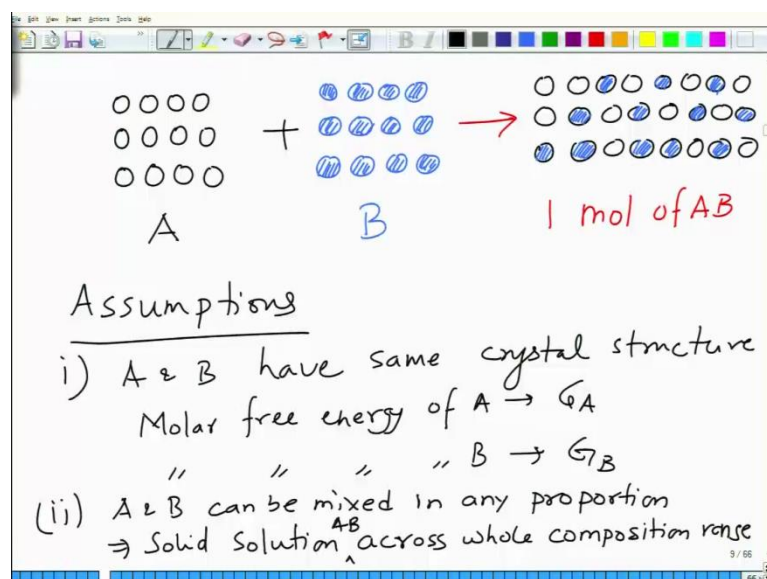 File Edit View Insert Actions Tools Help
B I
+
A B 1 mol of AB
Assumptions
i) A & B have same crystal structure
Molar free energy of A → GA
" " " " B → GB
(ii) A & B can be mixed in any proportion
⇒ Solid Solution AB across whole composition range
9 / 66
66